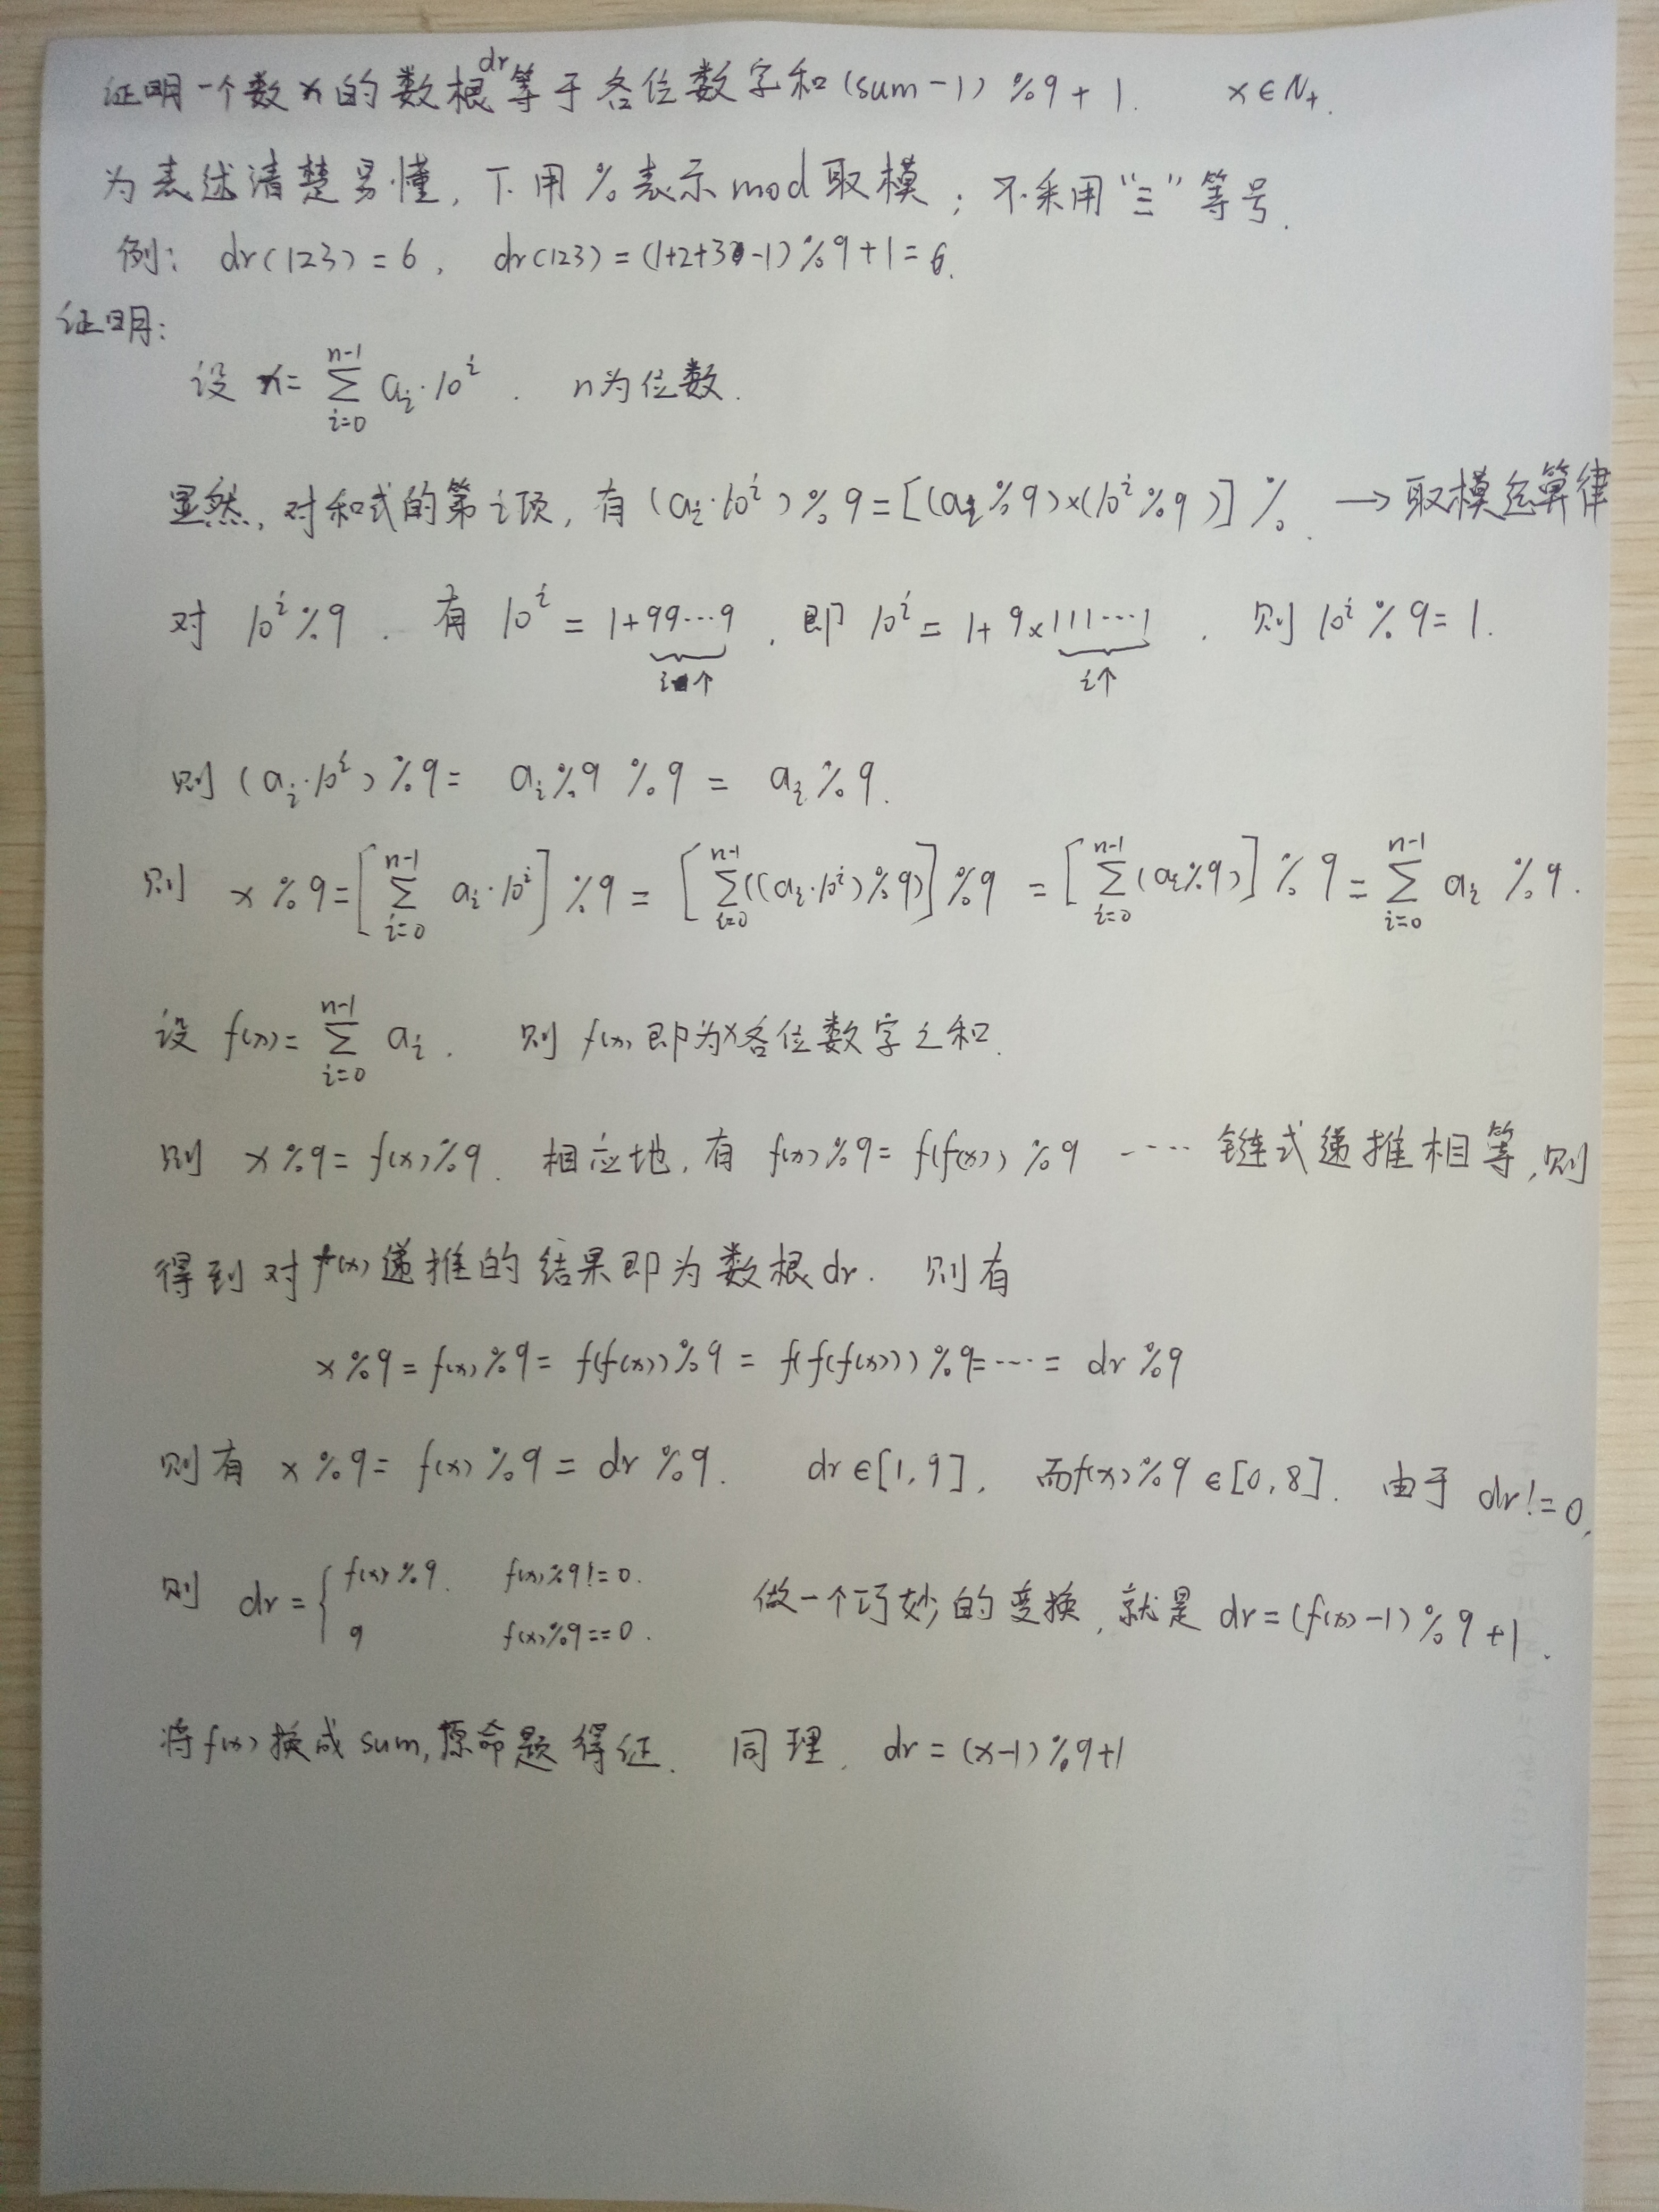 证明一个数x的数根dr等于各位数字和(sum-1)%9+1. x∈N+.
为表述清楚易懂,下用%表示mod取模;不采用"≡"等号.
例: dr(123)=6, dr(123)=(1+2+3-1)%9+1=6.
证明:
设 x=∑_{i=0}^{n-1} a_i·10^i. n为位数.
显然,对和式的第i项,有(a_i·10^i)%9=[(a_i%9)×(10^i%9)]%. →取模运算律
对 10^i%9. 有 10^i=1+99···9, 即 10^i=1+9×111···1. 则 10^i%9=1.
i个 i个
则(a_i·10^i)%9= a_i%9 %9 = a_i%9.
则 x%9=[∑_{i=0}^{n-1} a_i·10^i]%9=[∑_{i=0}^{n-1}((a_i·10^i)%9)]%9=[∑_{i=0}^{n-1}(a_i%9)]%9=∑_{i=0}^{n-1} a_i %9.
设 f(x)=∑_{i=0}^{n-1} a_i. 则 f(x)即为x各位数字之和.
则 x%9=f(x)%9. 相应地,有 f(x)%9=f(f(x))%9 ···· 链式递推相等,则
得到对f(x)递推的结果即为数根dr. 则有
x%9=f(x)%9=f(f(x))%9=f(f(f(x)))%9=····=dr%9
则有 x%9=f(x)%9=dr%9. dr∈[1,9], 而f(x)%9∈[0,8]. 由于 dr!=0,
则 dr={ f(x)%9. f(x)%9!=0.
9 f(x)%9==0. 做一个巧妙的变换,就是 dr=(f(x)-1)%9+1.
将f(x)换成sum,原命题得证. 同理, dr=(x-1)%9+1